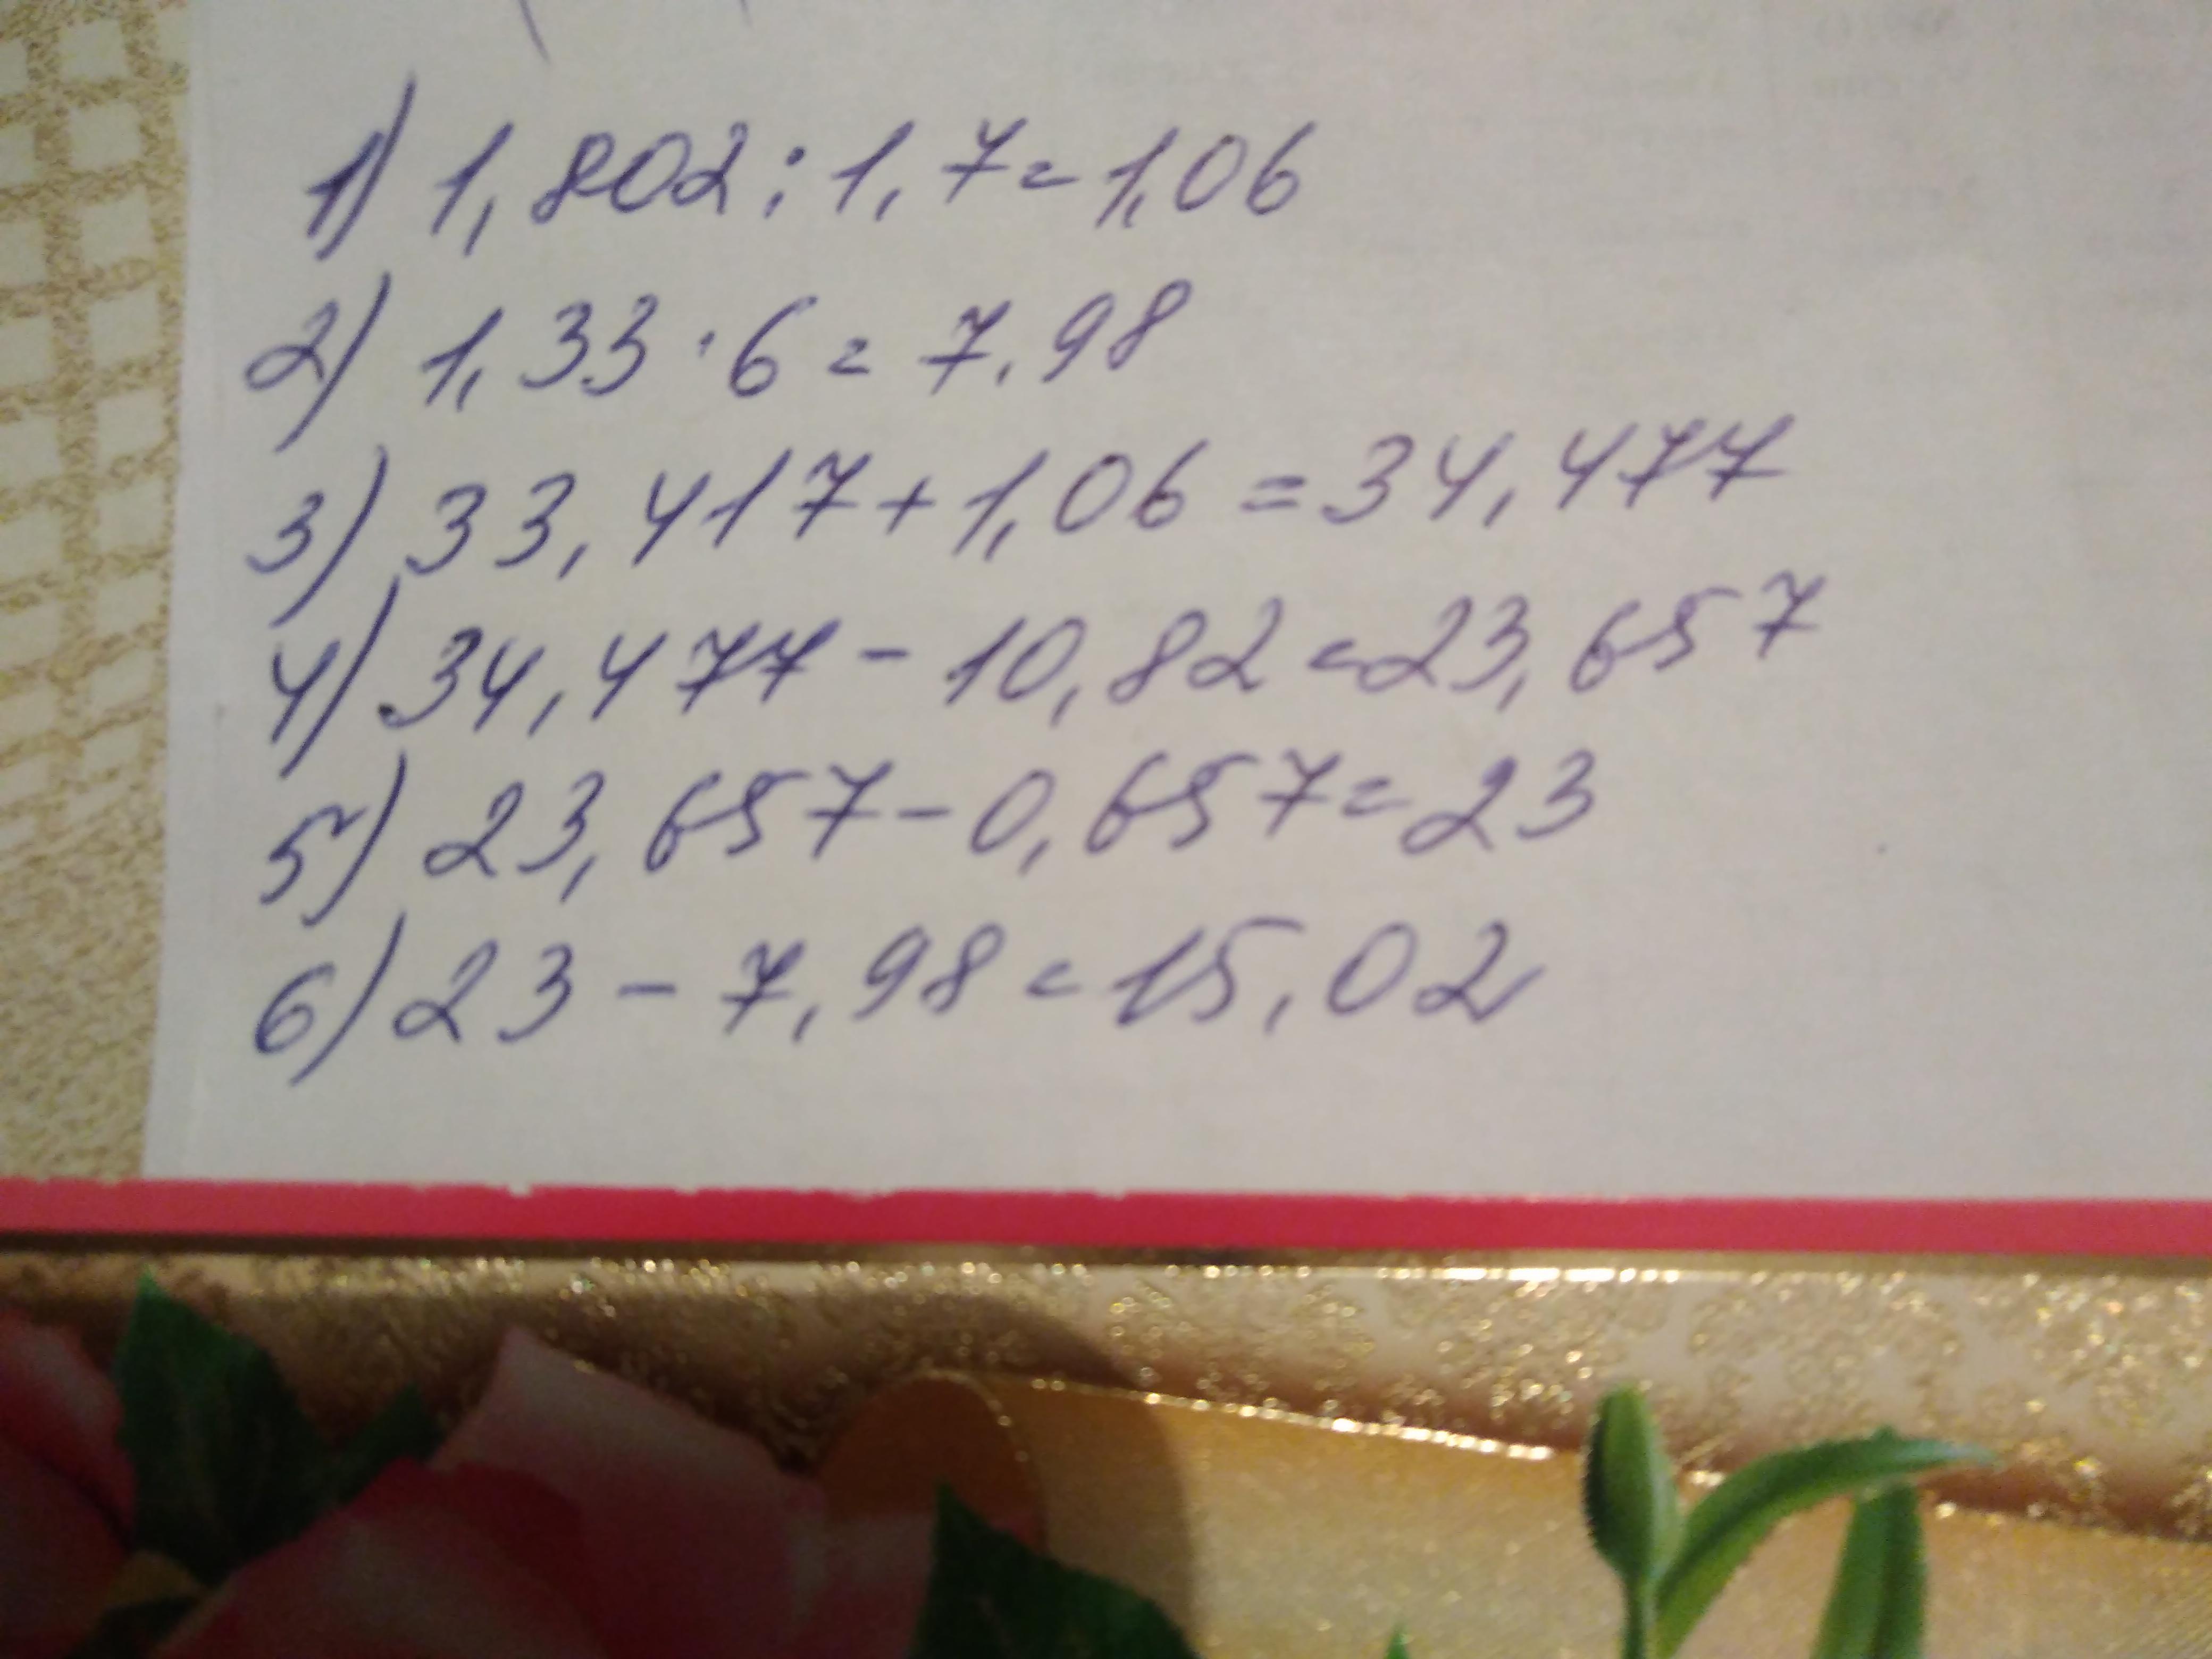 1) 1,802 : 1,7 = 1,06
2) 1,33 · 6 = 7,98
3) 33,417 + 1,06 = 34,477
4) 34,477 - 10,82 = 23,657
5) 23,657 - 0,657 = 23
6) 23 - 7,98 = 15,02